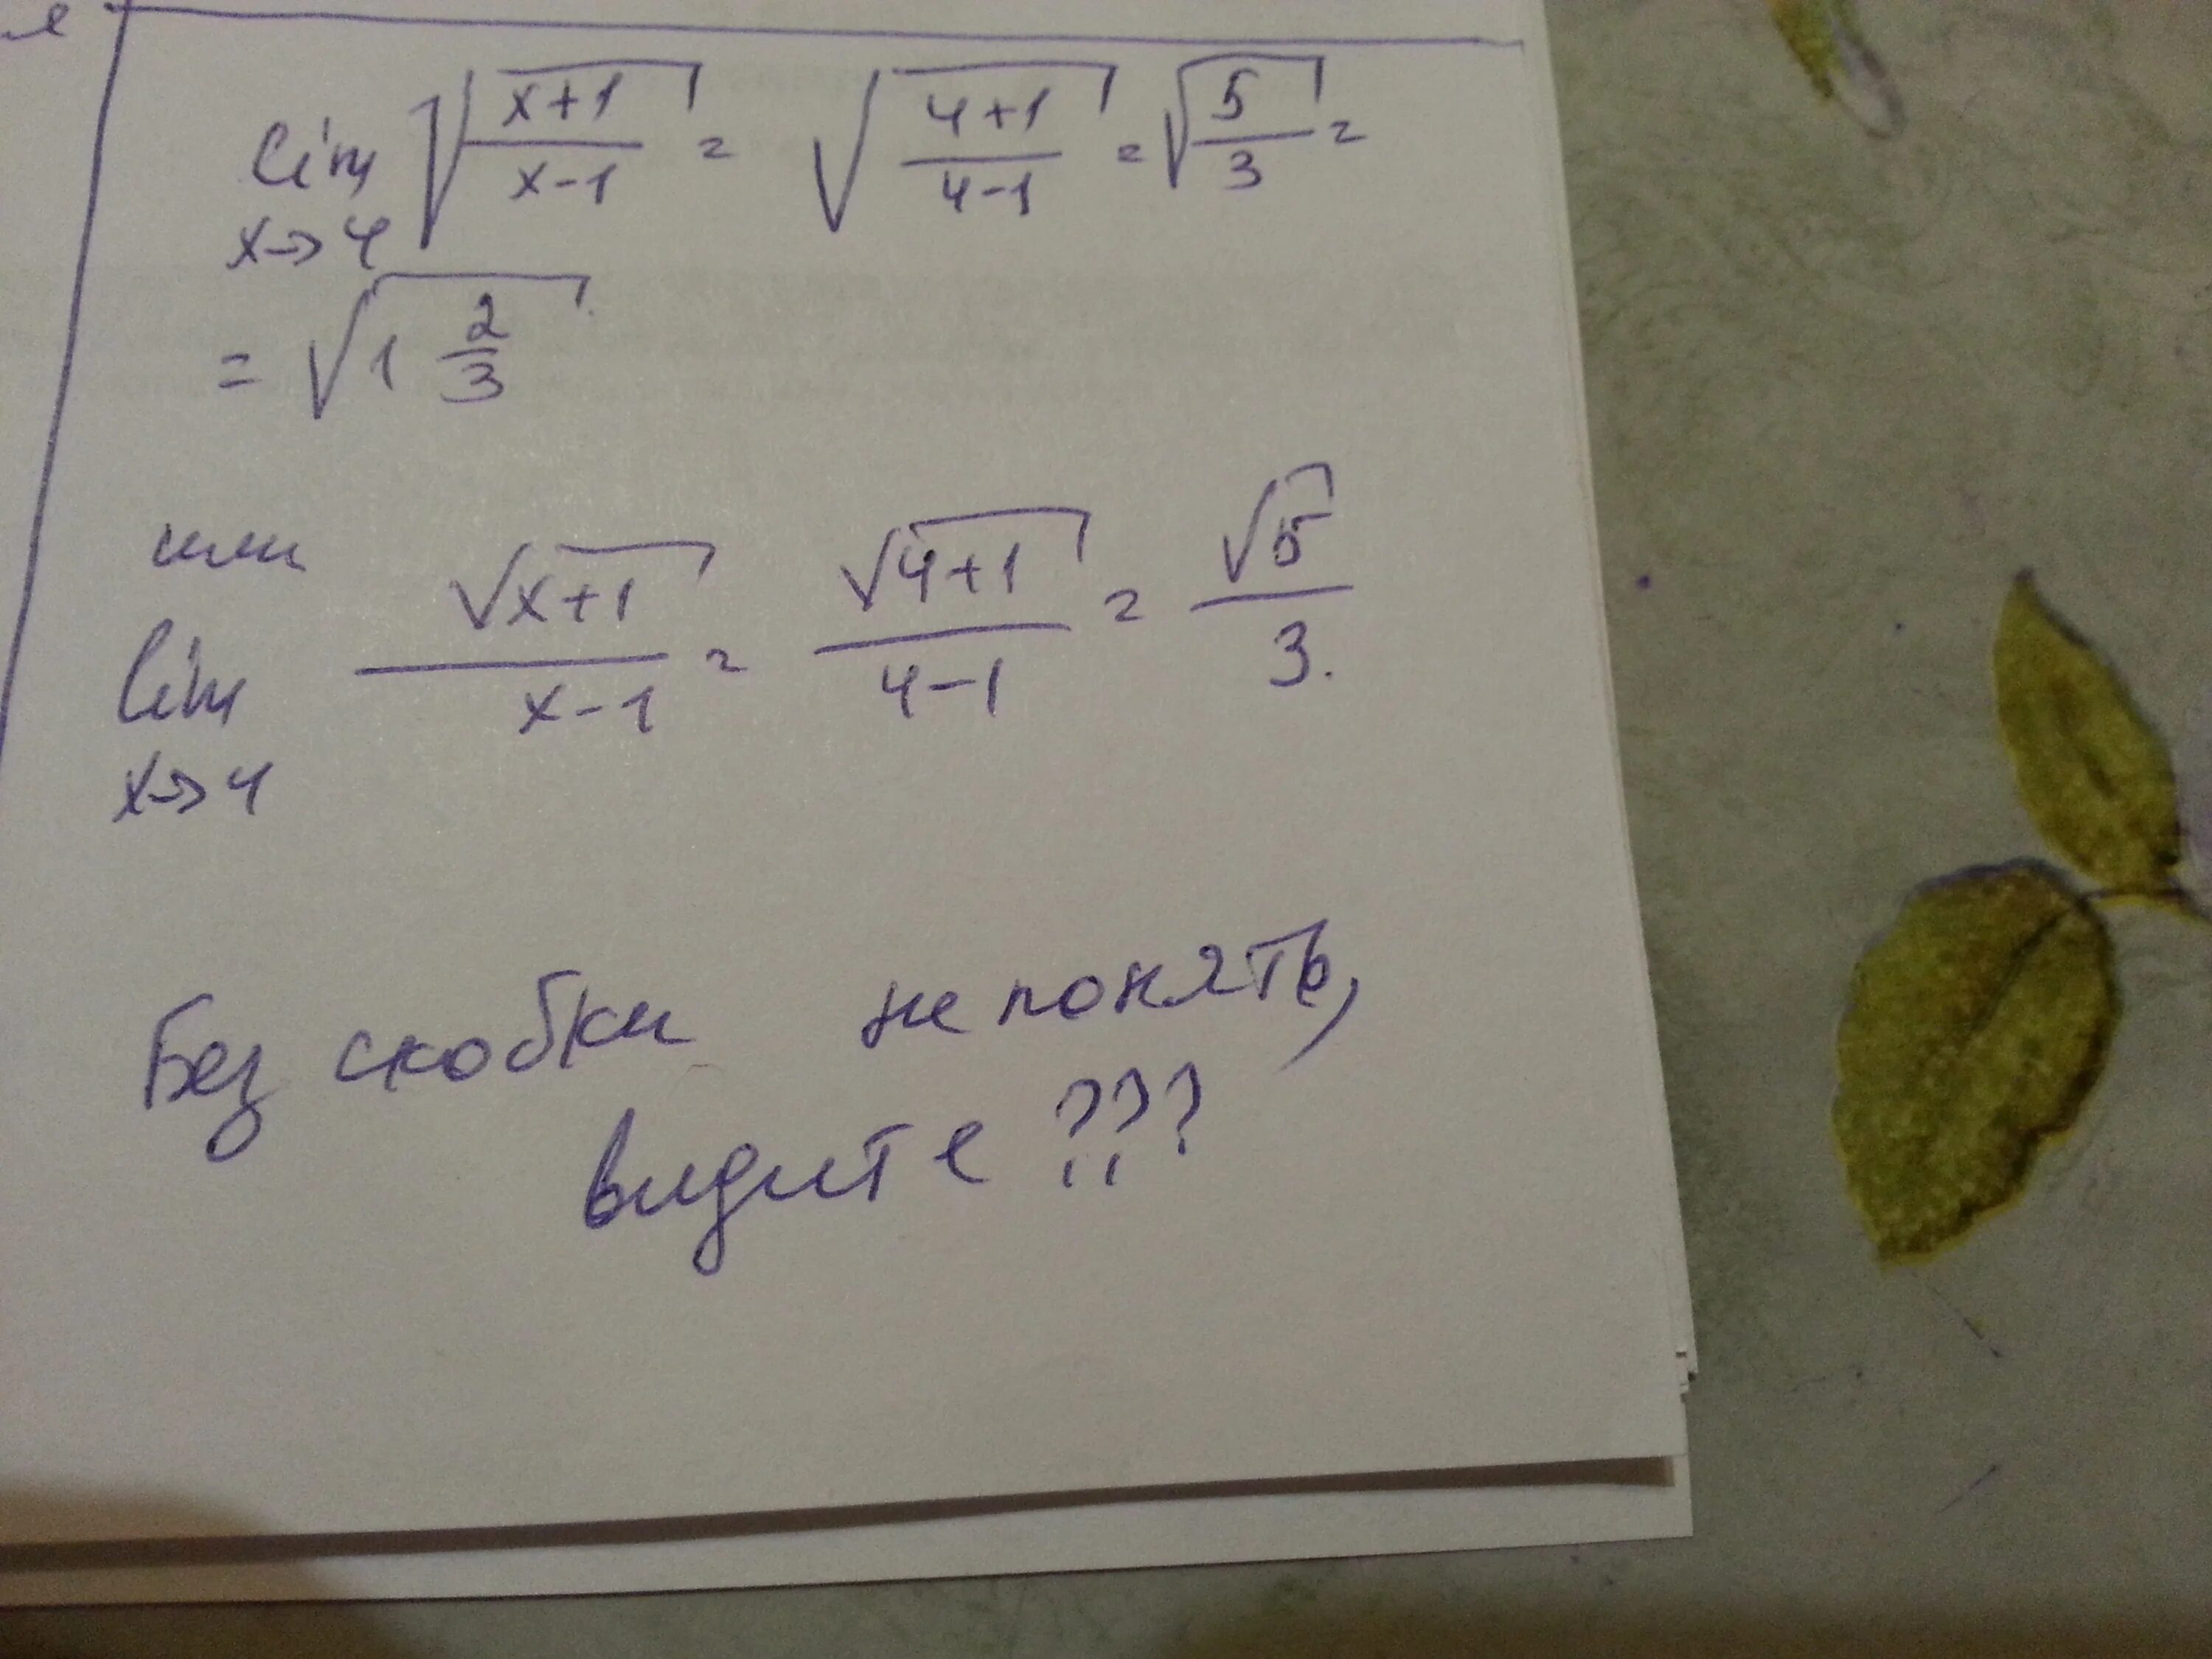 lim √(x+1)/(x-1) = √(4+1)/(4-1) = √5/3 =
x→4
= √1 2/3
или
lim √x+1/x-1 = √4+1/4-1 = √5/3.
x→4
Без скобки не понять,
видите???